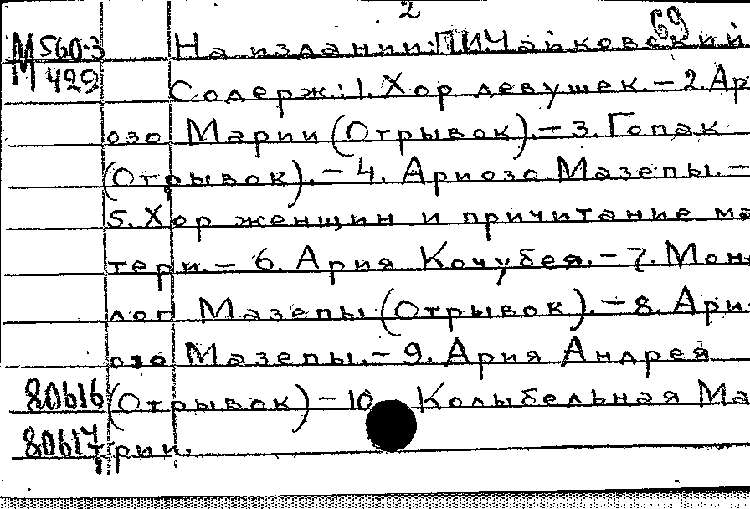 2
69
М560-3 На издании: П.И.Чайковский
М 429 Содерж: 1. Хор девушек. – 2. Ар
озо Марии (Отрывок). – 3. Гопак
(Отрывок). – 4. Ариозо Мазепы. –
5. Хор женщин и причитание ма
тери. – 6. Ария Кочубея. – 7. Мон
лог Мазепы (Отрывок). – 8. Ари
озо Мазепы. – 9. Ария Андрея
80616 (Отрывок) – 10. Колыбельная Ма
80617 рии.